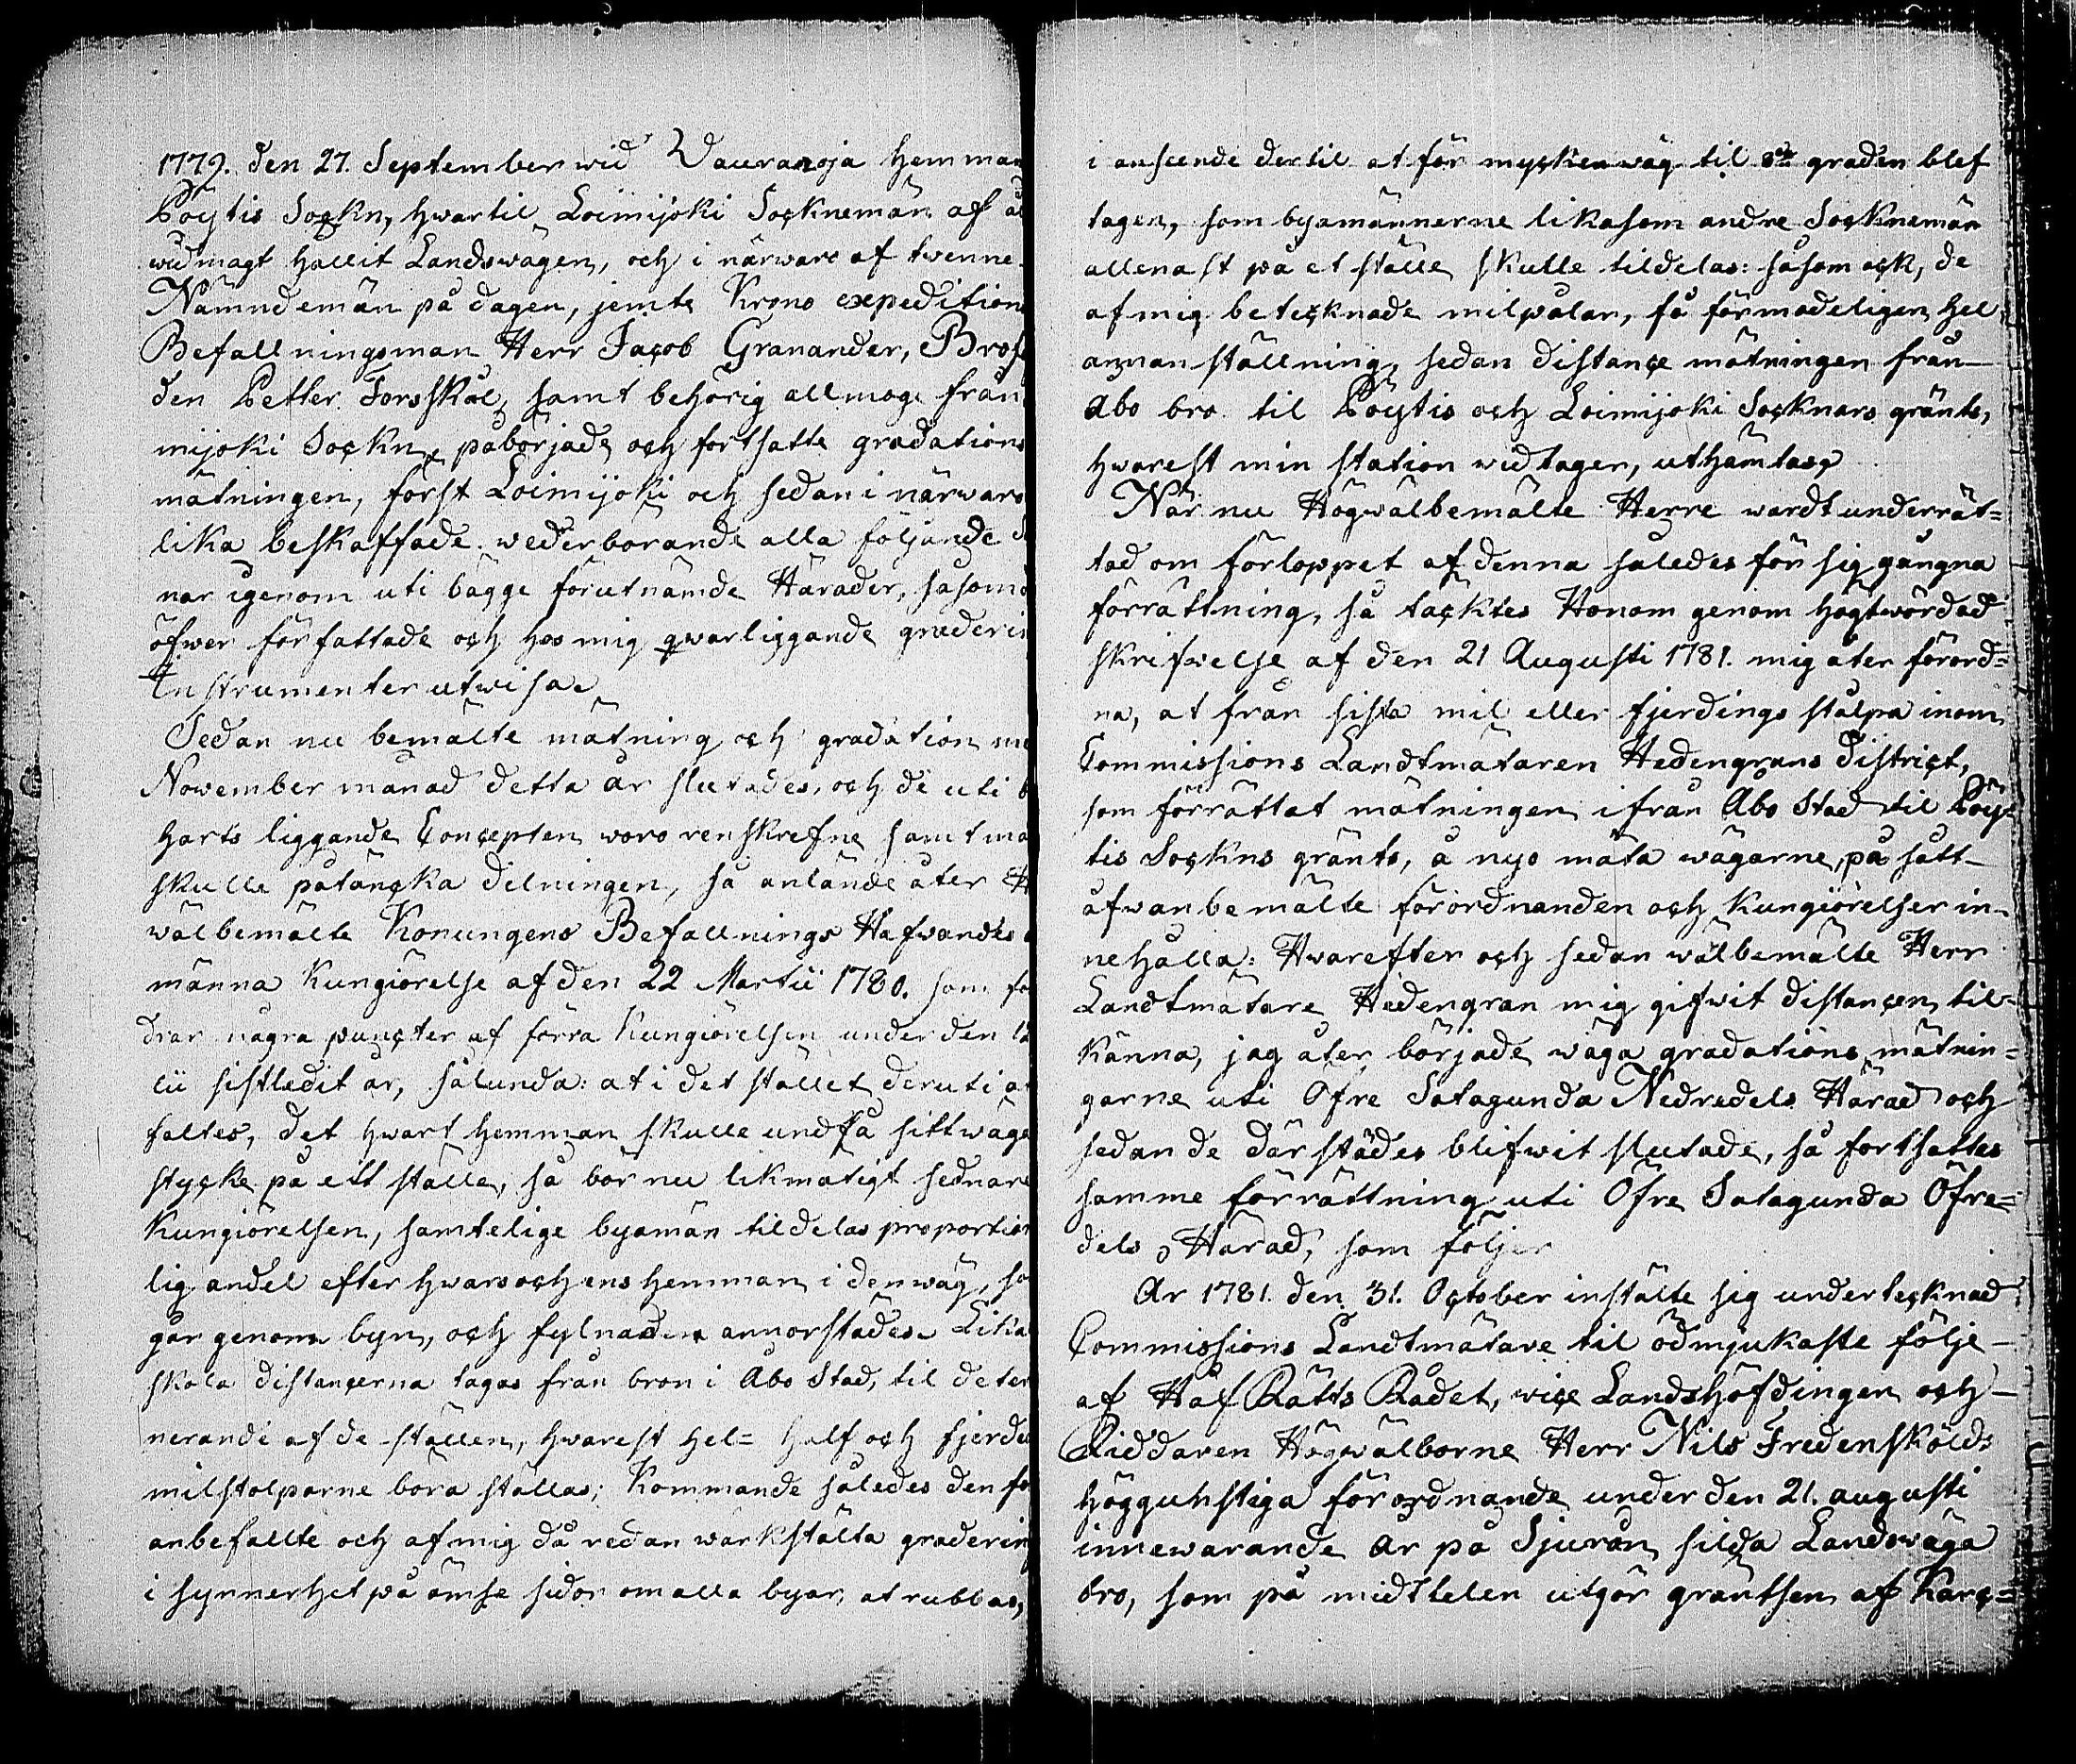 1779. den 27. September wid Vauranoja hemman
Pöytis Sockn, hwartil Loimijoki Socknemän af
widmagt hållit Landswägen, och i närwaro af twenne
Nämndemän på dagen, jemte Krono expeditions
Befallningsman Herr Jacob Granander,
den Petter Forsskål, samt behörig allmoge från
mijoki Sockn, påbörjade och fortsatte gradations
mätningen, först Loimijoki och sedan i närwaro
lika beskaffade wederbörande alla följande
nar igenom uti bägge förutnämde Härader, såsom
öfwer författade och hos mig qwarliggande graderin
Instrumenter utwisa.
Sedan nu bemälte mätning och gradation
November månad detta år slutades, och de uti
harts liggande Concepten woro renskrefne samt
skulle påtäncka delningen, så anlände åter
wälbemälte Konungens Befallnings Hafwandes
männa Kungiörelse af den 22 Martii 1780. som
drar några puncter af förra Kungiörelsen under den
lii sistledit år, sålunda: at i det stället deruti
faltes, det hwart hemman skulle undfå sitt wäga
stycke på ett ställe, så bör nu likmätigt sednare
Kungiörelsen, samtelige byamän tildelas proportion
lig andel efter hwars och ens hemman i den wäg,
går genom byn, och fylnaden annorstädes. Lika
skola distancerna tagas från bron i Åbo Stad, til deter
nerande af de ställen, hwarest hel= half och fjerde
milstolparne böra ställas; Kommande således den
anbefallte och af mig då redan wärkstälta graderin
i synnerhet på ömse sidor om alla byar, at rubbas,
i anseende dertil at för mycken wäg til graden blef
tagen, som byamännerne likasom andre Socknemän
allenast på et ställe skulle tildelas: såsom ock, de
af mig betecknade milpålar, få förmodeligen hel
annan ställning, sedan distance mätningen från
Åbo bro til Pöytis och Loimijoki Socknars gränts,
hwarest min station widtager, uthämtas.
När nu Högwälbemälte Herre wardt underrät=
tad om förloppet af denna således för sig gångna
förrättning, så täcktes Honom genom högtwördad
skrifwelse af den 21 Augusti 1781. mig åter förord=
na, at från sista mil eller fjerdings stålpa inom
Commissions Landtmätaren Hedengrans District,
som förrättat mätningen ifrån Åbo Stad til Pöy=
tis Sockns gränts, å nyo mäta wägarne, på sätt
ofwanbemälte förordnanden och Kungiörelser in-
nehålla: Hwarefter och sedan wälbemälte Herr
Landtmätare Hedengran mig gifwit distancen til-
känna, jag åter började wäga gradations mätnin=
garne uti Öfre Satagunda Nedredels Härad och
sedan de därstädes blifwit slutade, så fortsattes
samme förrättning uti Öfre Satagunda Öfre=
dels Härad, som följer
År 1781. den 31. October instälte sig undertecknad
Commissions Landtmätare til ödmjukaste följe
af Håf Rätts Rådet, vice Landshöfdingen och
Riddaren Högwälborne Herr Nils Fredenskölds
höggunstiga förordnande under den 21. augusti
innewarande år på Sjurön silda Landswäga
bro, som på midttelen utgör gräntsen af Karc=